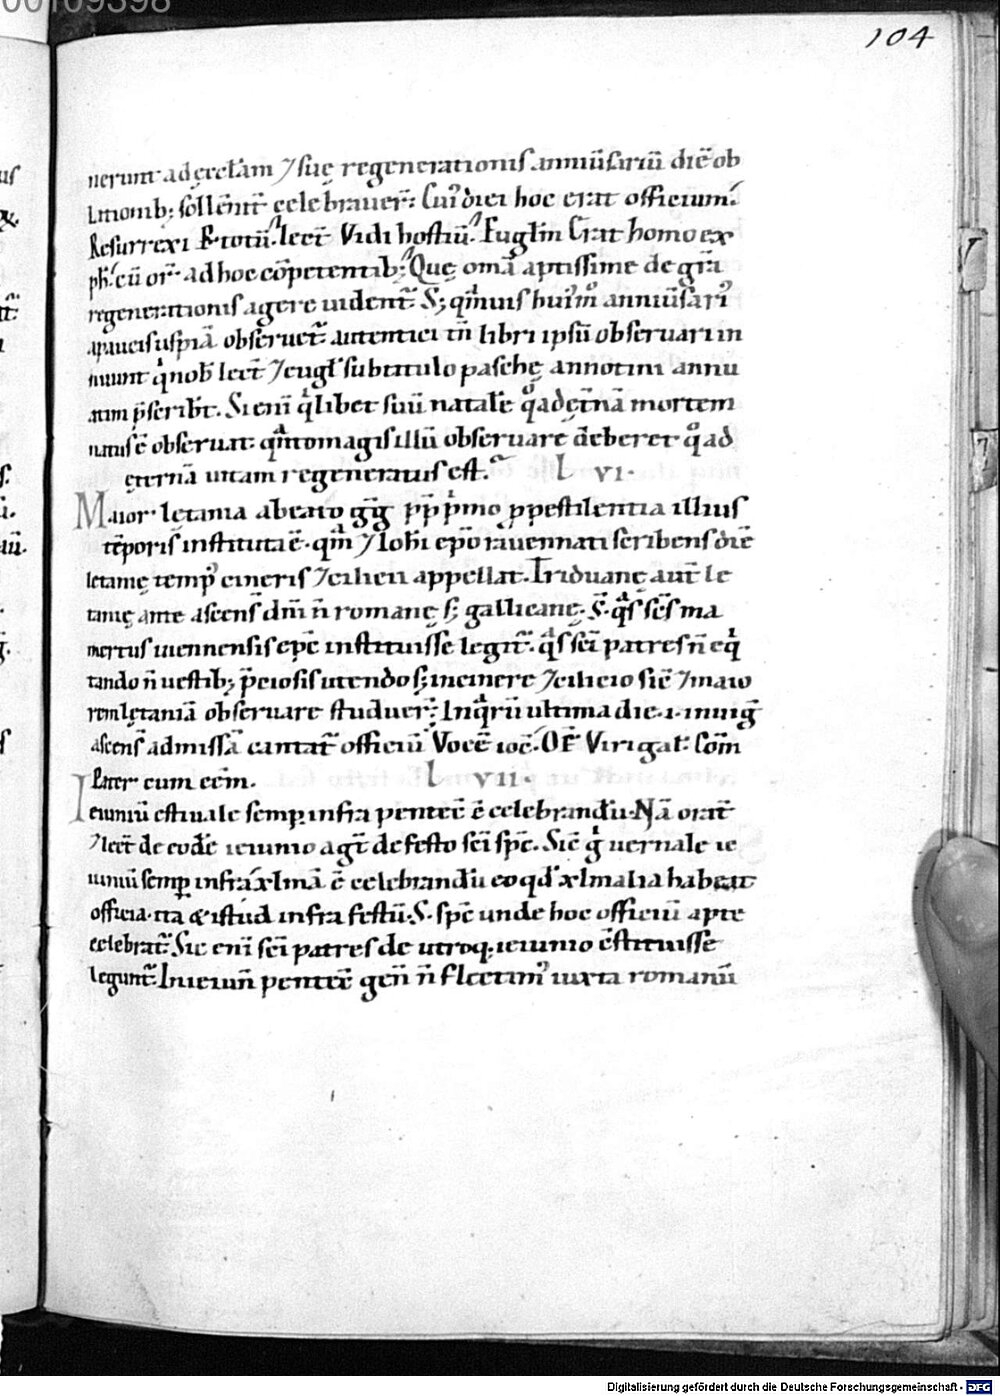 104
nerunt ad ęccƚam ⁊ suę regenerationis anniūsariū diē ob
lationib; sollēnit̄ celebrauer̄: Cui᷒ diei hoc erat officium:
Resurrexi R. totū. lect̄ Vidi hostiū. Euglīm Erat homo ex
ph. cū or̄ ad hoc cōpetentib; Quę omā aptissime de gr̄a
regenerationis agere uident̄. S; qͣmuis hui᷒mͦ anniūsari᷒
a paucis uspiā obseruet̄ autentici tn̄ libri ipsū obseruari in
nuunt q nob lect̄ ⁊ eugƚ sub titulo paschę annotini annu
atim p̄scribt̄. Si enī qͥlibet suū natale qͦ ad ęt̄nā mortem
natus ē obseruat qͣntomagis illū obseruare deberet qͦ ad
ęternā uitam regeneratus est. L VI.
Maior lętania a beato gḡ pp̄ pͥmo p pestilentia illius
tēporis instituta ē. qm̄ ⁊ Iohi ep̄o rauennati scribens diē
letanię temp᷒ cineris ⁊ cilicii appellat. Triduanę aut̄ le
tanię ante ascens̄ dn̄i n̄ romanę s; gallicanę. S. qͣs sc̄s ma
mertus uiennensis ep̄c instituisse legit̄. qͣs sc̄i patres n̄ eqͥ
tando n̄ uestib; p̄ciosis utendo s; in cinere ⁊ cilicio sic̄ ⁊ maio
rem lętaniā obseruare studuer̄: In qͣrū ultima die .i. in uigͥ
ascens̄ admissā cantat̄ officiū Vocē ioc̄. Of̄ Viri gal. Com̄
Pater cum eēm. L VII.
Ieiuniū estiuale semp infra pentec̄ ē celebrandū. Nā orat̄
⁊ lect̄ de eodē ieiunio agt̄ de festo sc̄i sp̄c. Sic̄ gͥ uernale ie
iuniū semp infra xlmā ē celebrandū eo qd xlmalia habeat
officia. ita & istud infra festū. S. sp̄c unde hoc officiū apte
celebrat̄. Sic enī sc̄i patres de utroq; ieiunio c̄stituisse
legunt̄. In ieiun̄ pentec̄ gen̄ n̄ flectim᷒ iuxta romanū
Digitalisierung gefördert durch die Deutsche Forschungsgemeinschaft - DFG